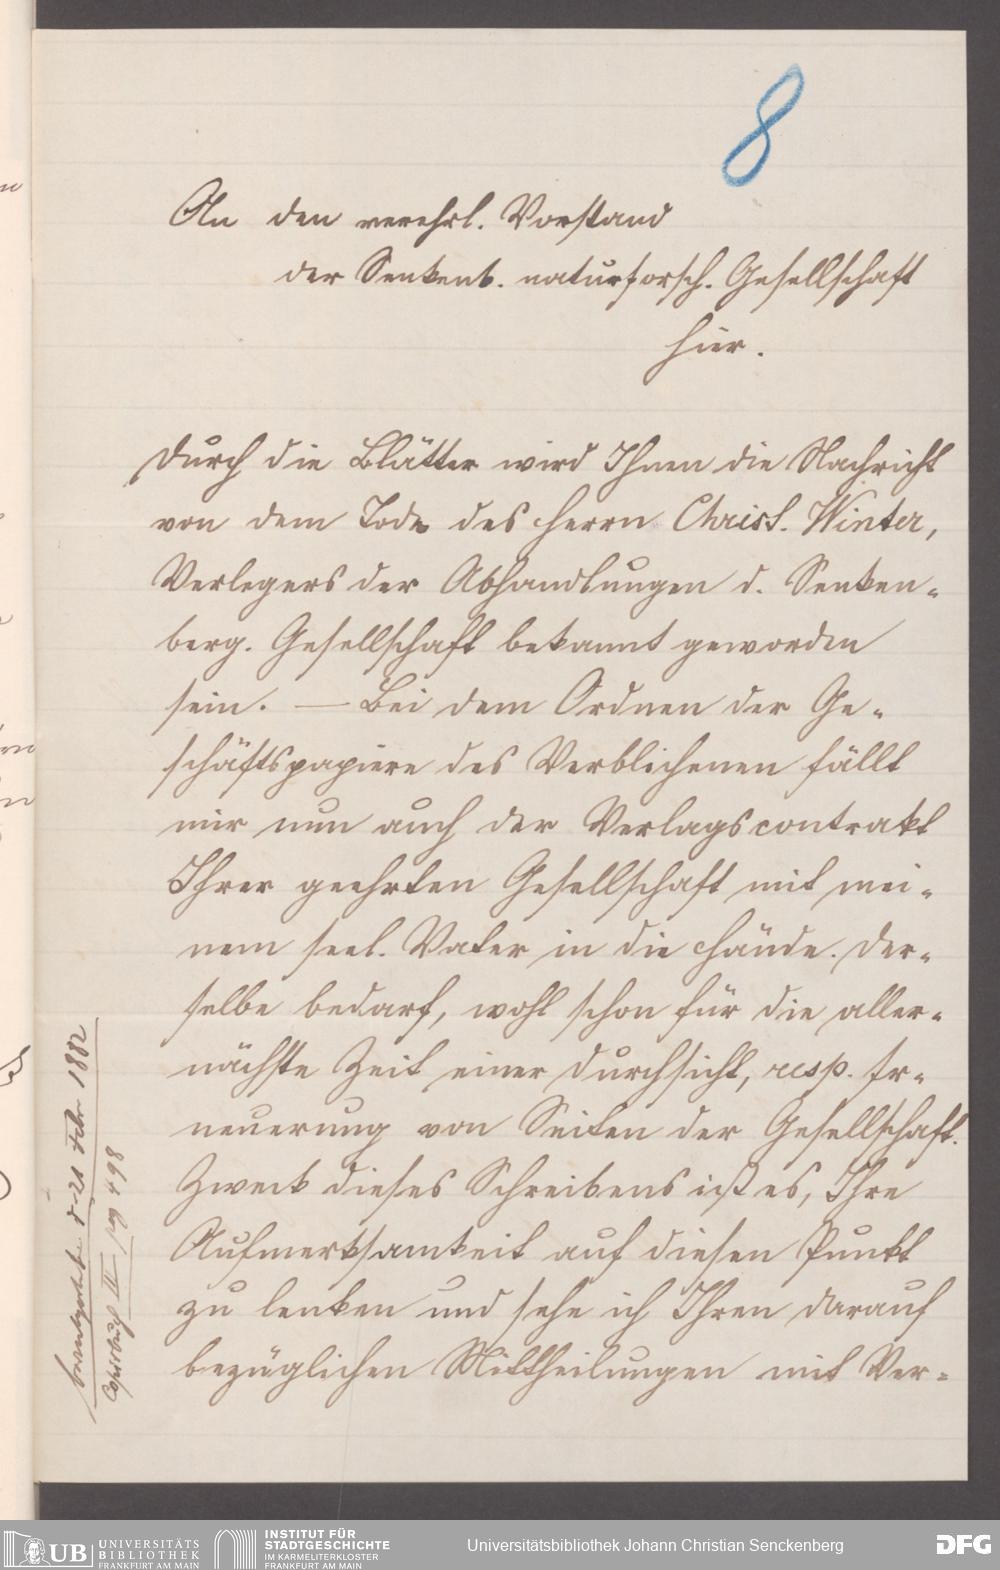 8
An den verehrl. Vorstand
der Senkenb. naturforsch. Gesellschaft
hier.
Durch die Blätter wird Ihnen die Nachricht
von dem Tode des Herrn Christ. Winter,
Verlegers der Abhandlungen d. Senken-
berg. Gesellschaft bekannt geworden
sein. — Bei dem Ordnen der Ge-
schäftspapiere des Verblichenen fällt
mir nun auch der Verlagscontrakt
Ihrer geehrten Gesellschaft mit mei-
nem seel. Vater in die Hände. Der-
selbe bedarf, wohl schon für die aller-
nächste Zeit einer Durchsicht, resp. Er-
neuerung von Seiten der Gesellschaft.
Zweck dieses Schreibens ist es, Ihre
Aufmerksamkeit auf diesen Punkt
zu lenken und sehe ich Ihren darauf
bezüglichen Mittheilungen mit Ver-
d. 21 Febr 1882
Copirbuch III pag 498
UB UNIVERSITÄTS
BIBLIOTHEK
FRANKFURT AM MAIN
INSTITUT FÜR
STADTGESCHICHTE
IM KARMELITERKLOSTER
FRANKFURT AM MAIN
Universitätsbibliothek Johann Christian Senckenberg
DFG